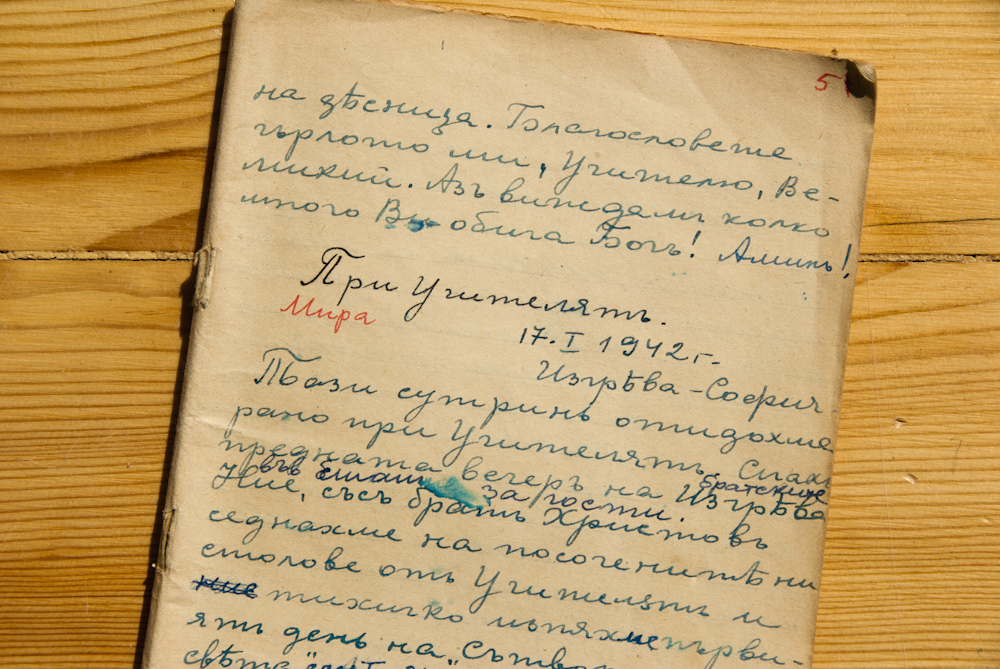 5
на дѣсница. Благословете
гърлото ми, Учителю, Ве-
ликий. Азъ виждамъ колко
много Ви обича Богъ! Аминь!
При Учителятъ.
Мира
17. I 1942 г.
Изгрѣва - София
Тъзи сутринь отидохме
рано при Учителятъ. Спахъ
предната вечеръ на Изгрѣва
въвъ за гости. братските
Ние, съсъ братъ Христовъ
седнахме на посоченитѣ ни
столове отъ Учителятъ и
ние тихичко изпяхме първи-
ятъ день на „Сътвор
свѣта